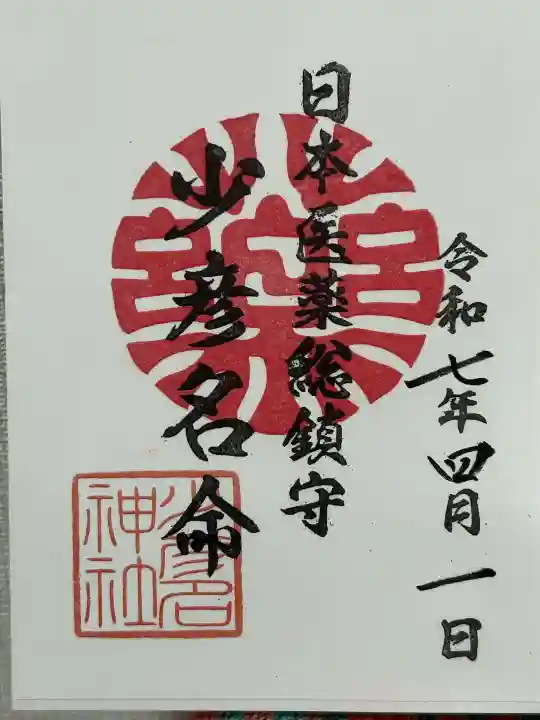 令和七年四月一日
日本医薬総鎮守
少彦名命
少彦名
神社